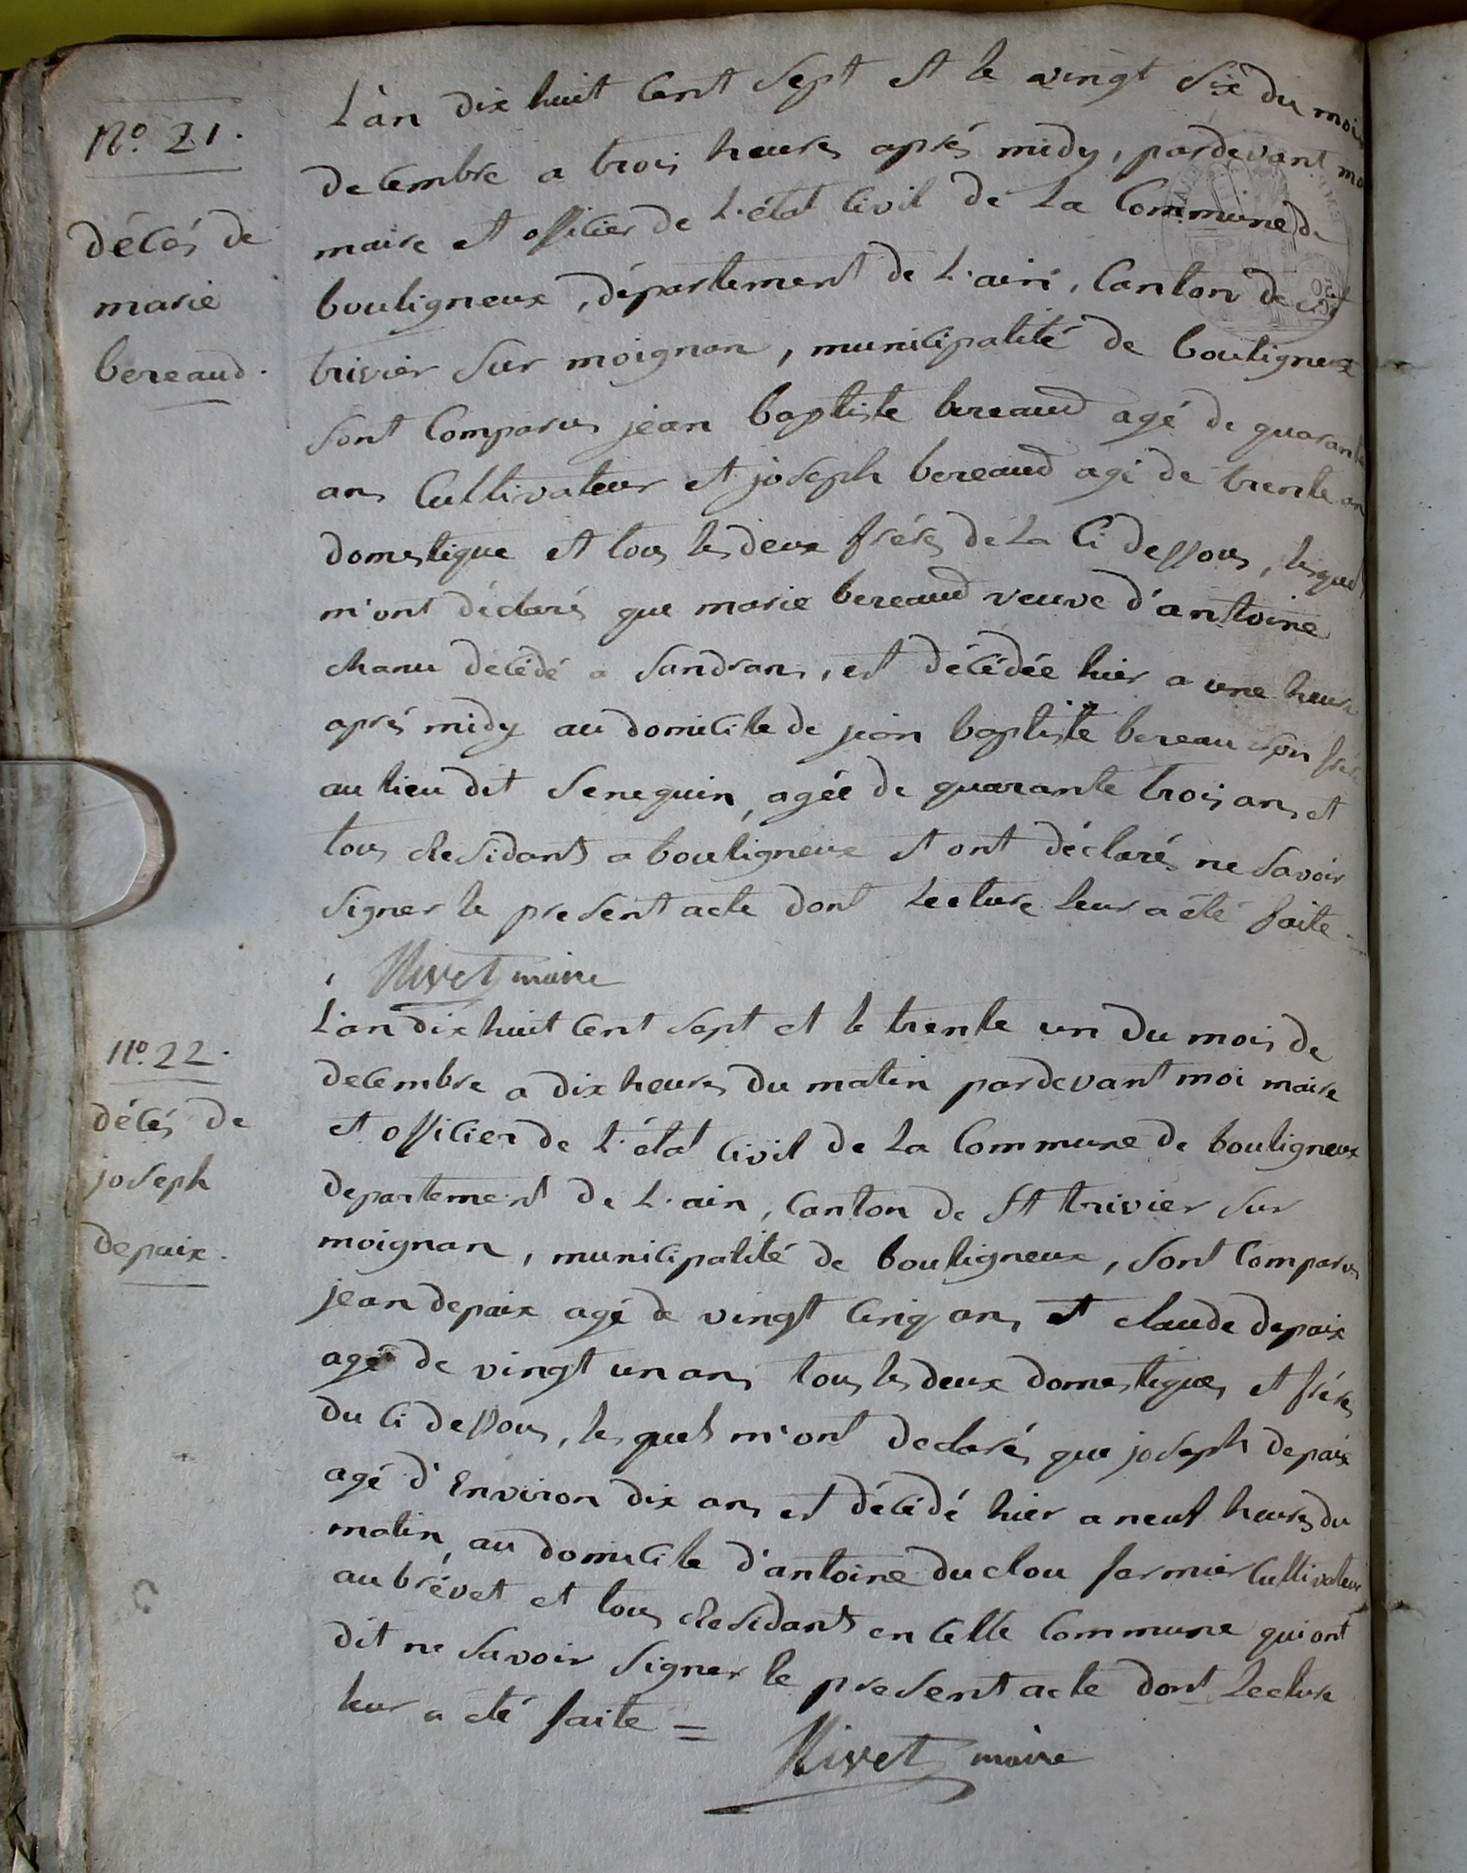 N.o 21.
décés de
marie
bereaud.
L'an dix huit cent sept et le vingt six du mois
decembre a trois heures aprés midy, pardevant moi
maire et officier de L'état civil de La Commune de
bouligneux, département de L'ain, Canton de st
trivier sur moignan, municipalité de bouligneux
sont Comparus jean baptiste bereaud agé de quarante
ans Cultivateur et joseph bereaud agé de trente ans
domestique et tous les deux fréres de La Ci dessous, lesquels
m'ont déclarés que marie bereaud veuve d'antoine
chanu décédé a sandrans, est décédée hier a une heure
aprés midy au domicile de jean baptiste bereau son frére
au lieu dit seneguin, agée de quarante trois ans et
tous Residants a bouligneux et ont déclarés ne savoir
signer le present acte dont Lecture leur a été faite.
Nivet maire
N.o 22.
décés de
joseph
depaix.
L'an dix huit cent sept et le trente un du mois de
decembre a dix heures du matin pardevant moi maire
et officier de L'état civil de La Commune de bouligneux
departement de L'ain, Canton de st trivier sur
moignan, municipalité de bouligneux, sont Comparus
jean depaix agé de vingt cinq ans et claude depaix
agé de vingt un ans tous les deux domestiques et fréres
du ci dessous, les quels m'ont declarés que joseph depaix
agé d'Environ dix ans est décédé hier a neuf heures du
matin, au domicile d'antoine duclou fermier Cultivateur
au brévet et tous Residants en cette Commune qui ont
dit ne savoir signer le present acte dont Lecture
leur a été faite =
Nivet maire